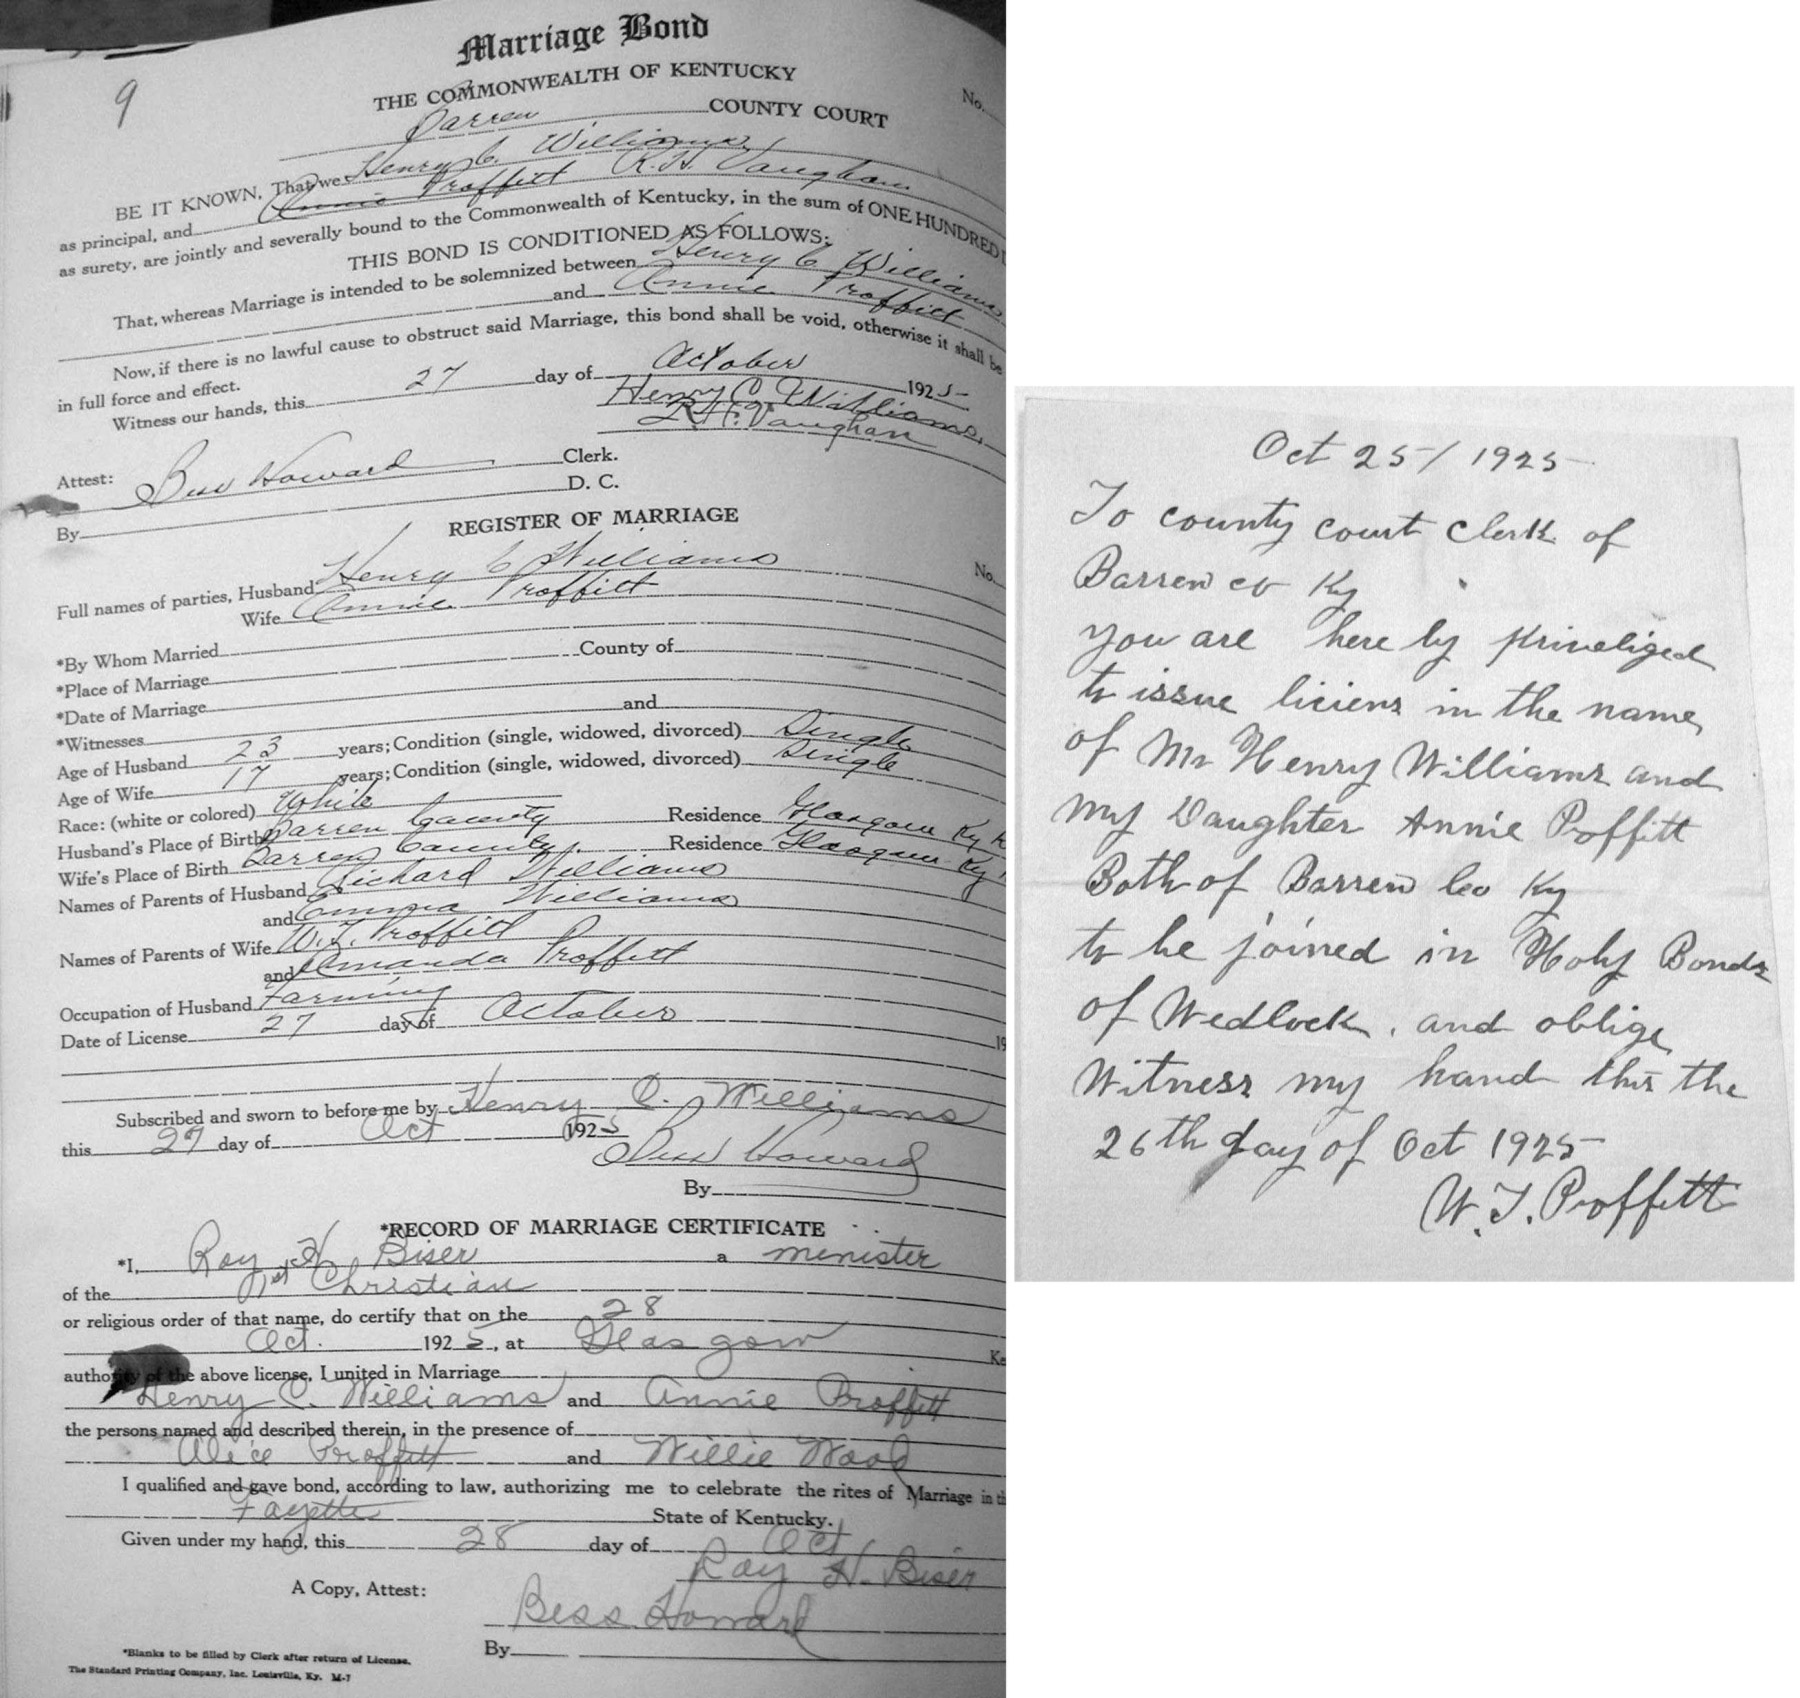 9
Marriage Bond
THE COMMONWEALTH OF KENTUCKY
No.
Barren COUNTY COURT
BE IT KNOWN, That we Henry C. Williams
as principal, and Annie Proffitt R. H. Vaughan
as surety, are jointly and severally bound to the Commonwealth of Kentucky, in the sum of ONE HUNDRED
THIS BOND IS CONDITIONED AS FOLLOWS:
That, whereas Marriage is intended to be solemnized between Henry C Williams
and Annie Proffitt
Now, if there is no lawful cause to obstruct said Marriage, this bond shall be void, otherwise it shall be
in full force and effect.
Witness our hands, this 27 day of October 1925
Henry C. Williams,
R. H. Vaughan
Attest: Bess Howard Clerk.
By D. C.
REGISTER OF MARRIAGE
No.
Full names of parties, Husband Henry C Williams
Wife Annie Proffitt
*By Whom Married
*Place of Marriage County of
*Date of Marriage
*Witnesses and
Age of Husband 23 years; Condition (single, widowed, divorced) Single
Age of Wife 17 years; Condition (single, widowed, divorced) Single
Race: (white or colored) White
Husband's Place of Birth Barren County Residence Glasgow Ky
Wife's Place of Birth Barren County. Residence Glasgow Ky
Names of Parents of Husband Richard Williams
and Emma Williams
Names of Parents of Wife W. T. Proffitt
and Amanda Proffitt
Occupation of Husband Farming
Date of License 27 day of October 19
Subscribed and sworn to before me by Henry C. Williams
this 27 day of Oct 1925
Bess Howard
By
*RECORD OF MARRIAGE CERTIFICATE
*I, Roy H Biser a minister
of the 1st Christian
or religious order of that name, do certify that on the 28
Oct. 1925, at Glasgow
authority of the above license, I united in Marriage
Henry C. Williams and Annie Proffitt
the persons named and described therein, in the presence of
Alice Proffitt and Willie Wood
I qualified and gave bond, according to law, authorizing me to celebrate the rites of Marriage in
Fayette State of Kentucky.
Given under my hand, this 28 day of Oct
Roy H. Biser
A Copy, Attest:
Bess Howard
By
*Blanks to be filled by Clerk after return of License.
The Standard Printing Company, Inc. Louisville, Ky. M-7
Oct 25/1925
To county court Clerk of
Barren co Ky
you are here by priveliged
to issue liciens in the name
of Mr Henry Williams and
my Daughter Annie Proffitt
Both of Barren Co Ky
to be joined in Holy Bonds
of Wedlock, and oblige
Witness my hand this the
26th day of Oct 1925
W. T. Proffitt